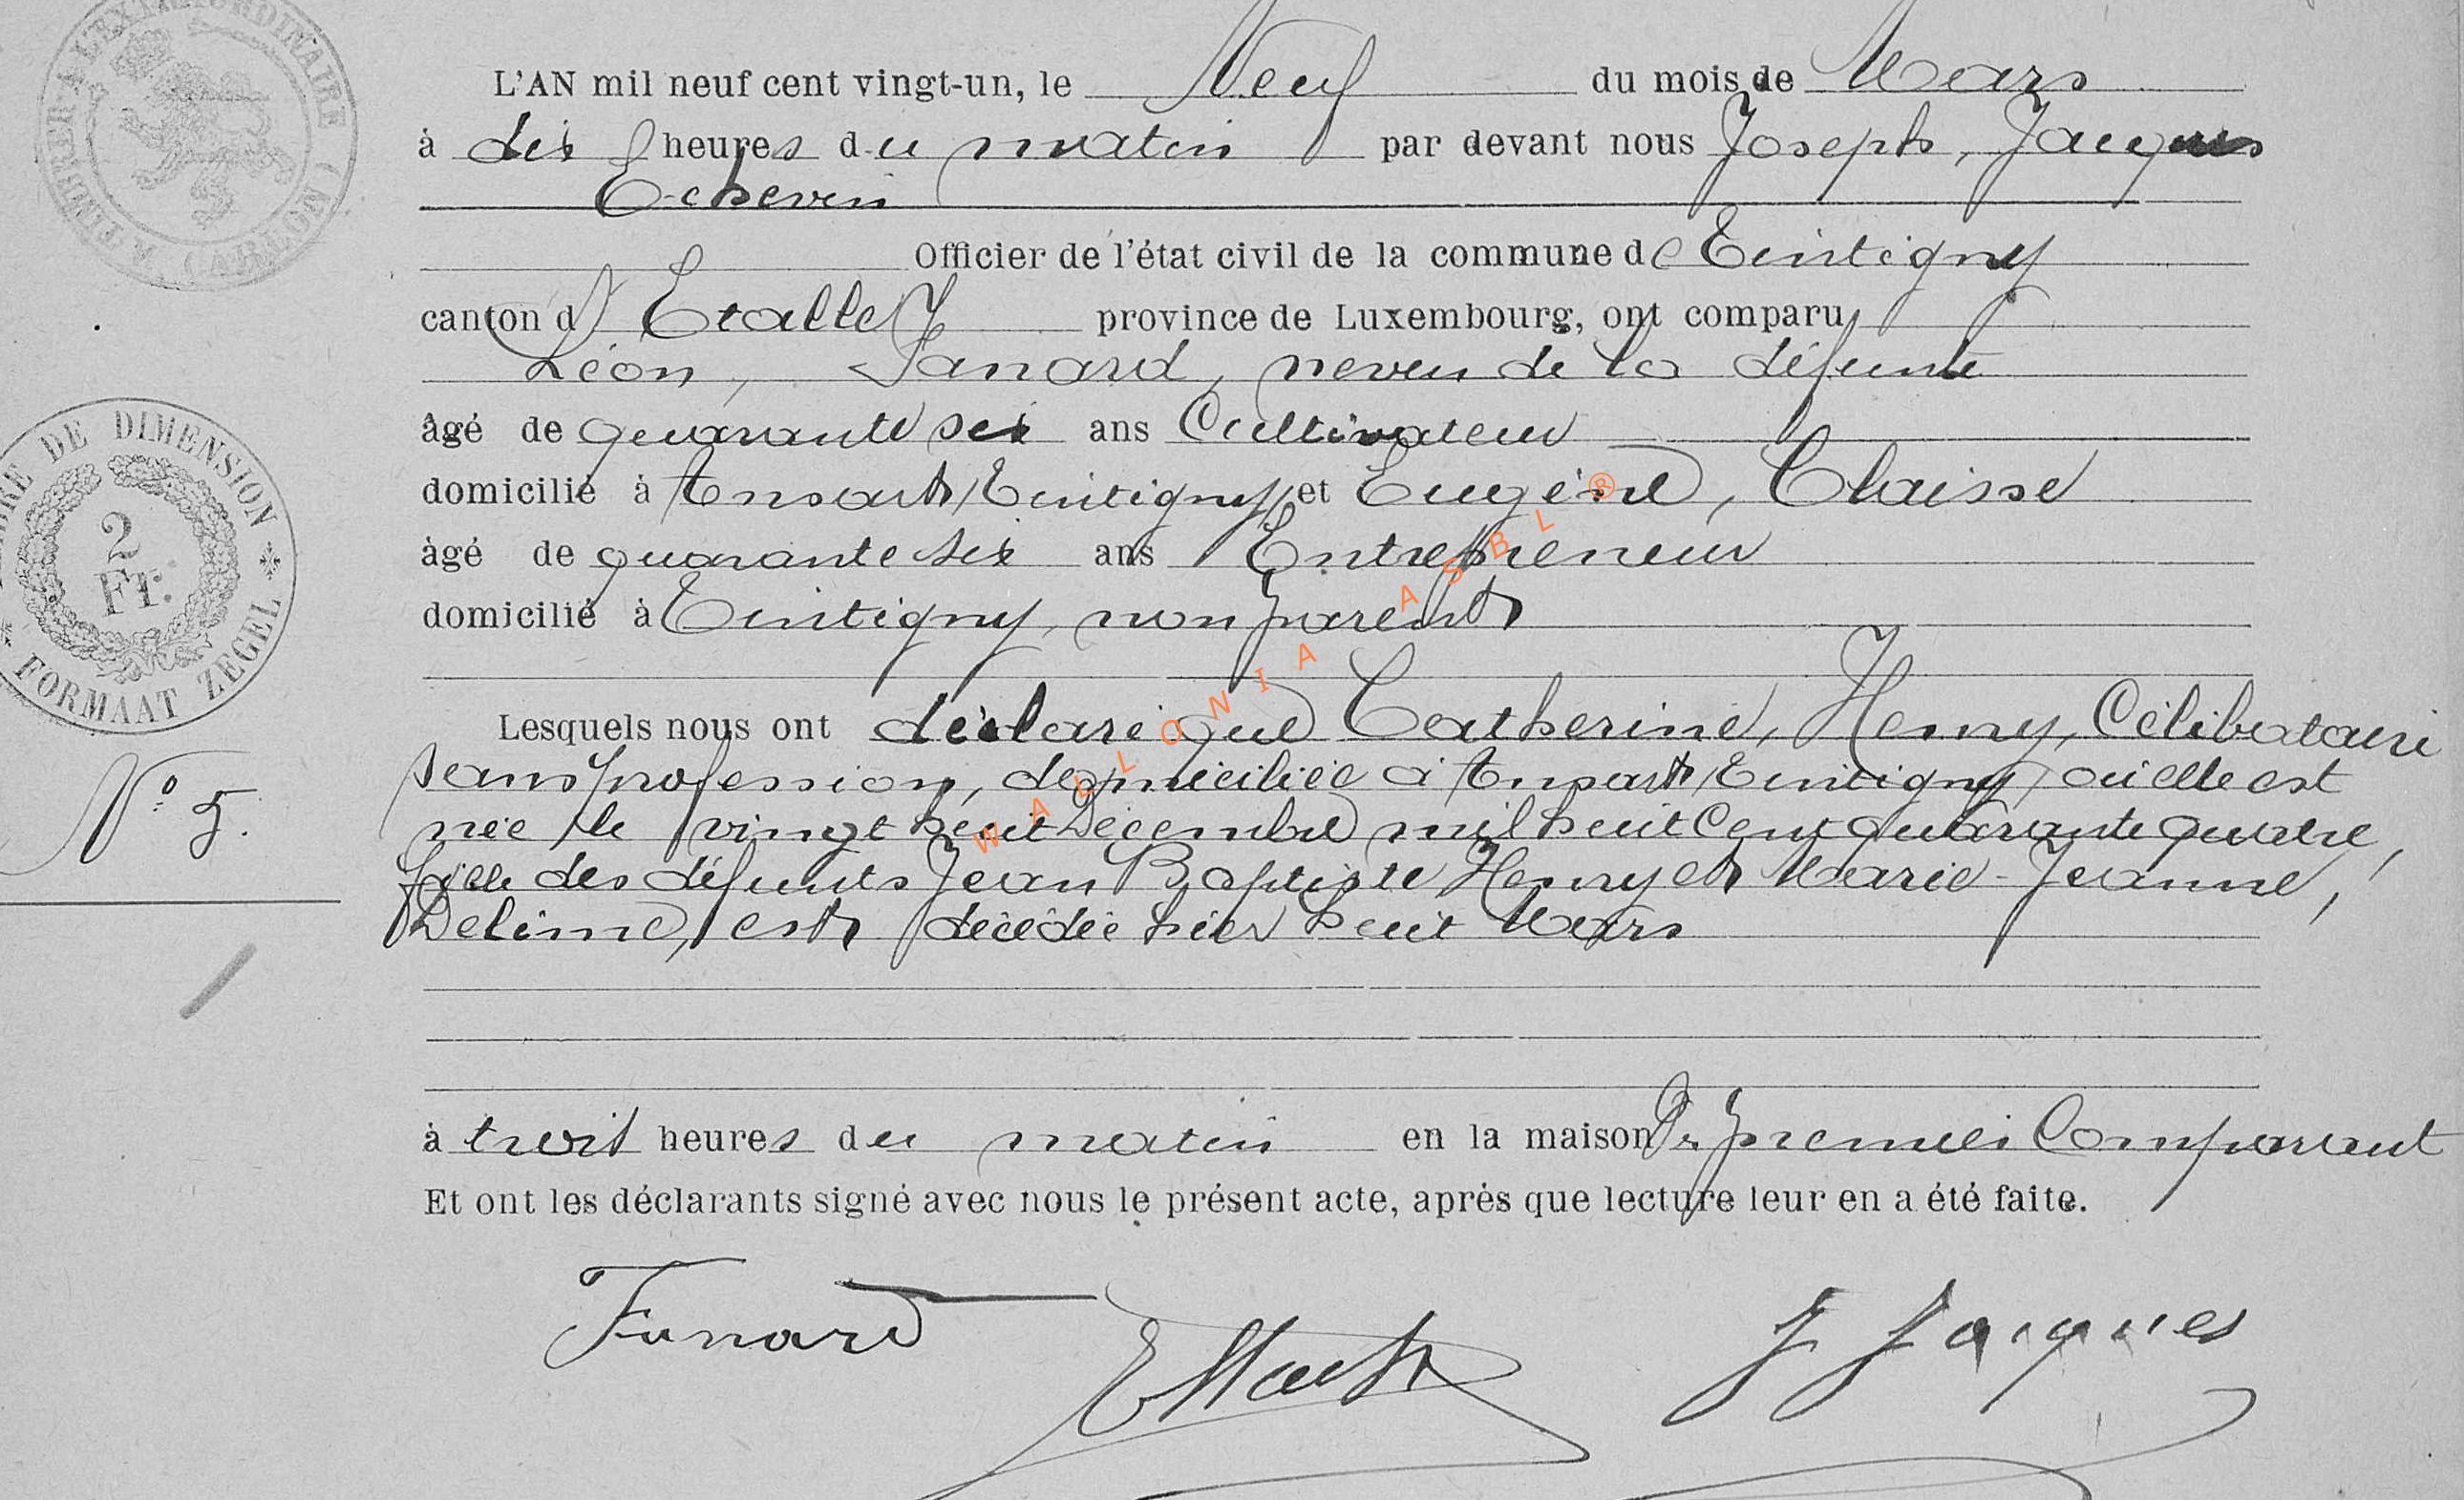 L'AN mil neuf cent vingt-un, le Neuf du mois de Mars
à dix heures du matin par devant nous Joseph, Jacques
Echevin
Officier de l'état civil de la commune de Tintigny
canton d'Etalle province de Luxembourg, ont comparu
Léon, Fanard, neveu de la défunte
âgé de quarante six ans Cultivateur
domicilié à Ansart, Tintigny, et Eugène, Claisse
âgé de quarante six ans Entrepreneur
domicilié à Tintigny, non parent
Lesquels nous ont déclaré que Catherine, Henry, Célibataire
sans profession, domiciliée à Ansart, Tintigny, où elle est
née le vingt huit Décembre mil huit Cent quarante quatre,
fille des défunts Jean Baptiste Henry et Marie-Jeanne,
Delime, est décédée hier huit Mars
à trois heures du matin en la maison Dr premier Comparant
Et ont les déclarants signé avec nous le présent acte, après que lecture leur en a été faite.
Fanard
J Jacques
N° 5.
TIMBRE DE DIMENSION
2
Fr.
FORMAAT ZEGEL
TIMBRE A L'EXTRAORDINAIRE
A ARLON
WALLONIA ASBL ®